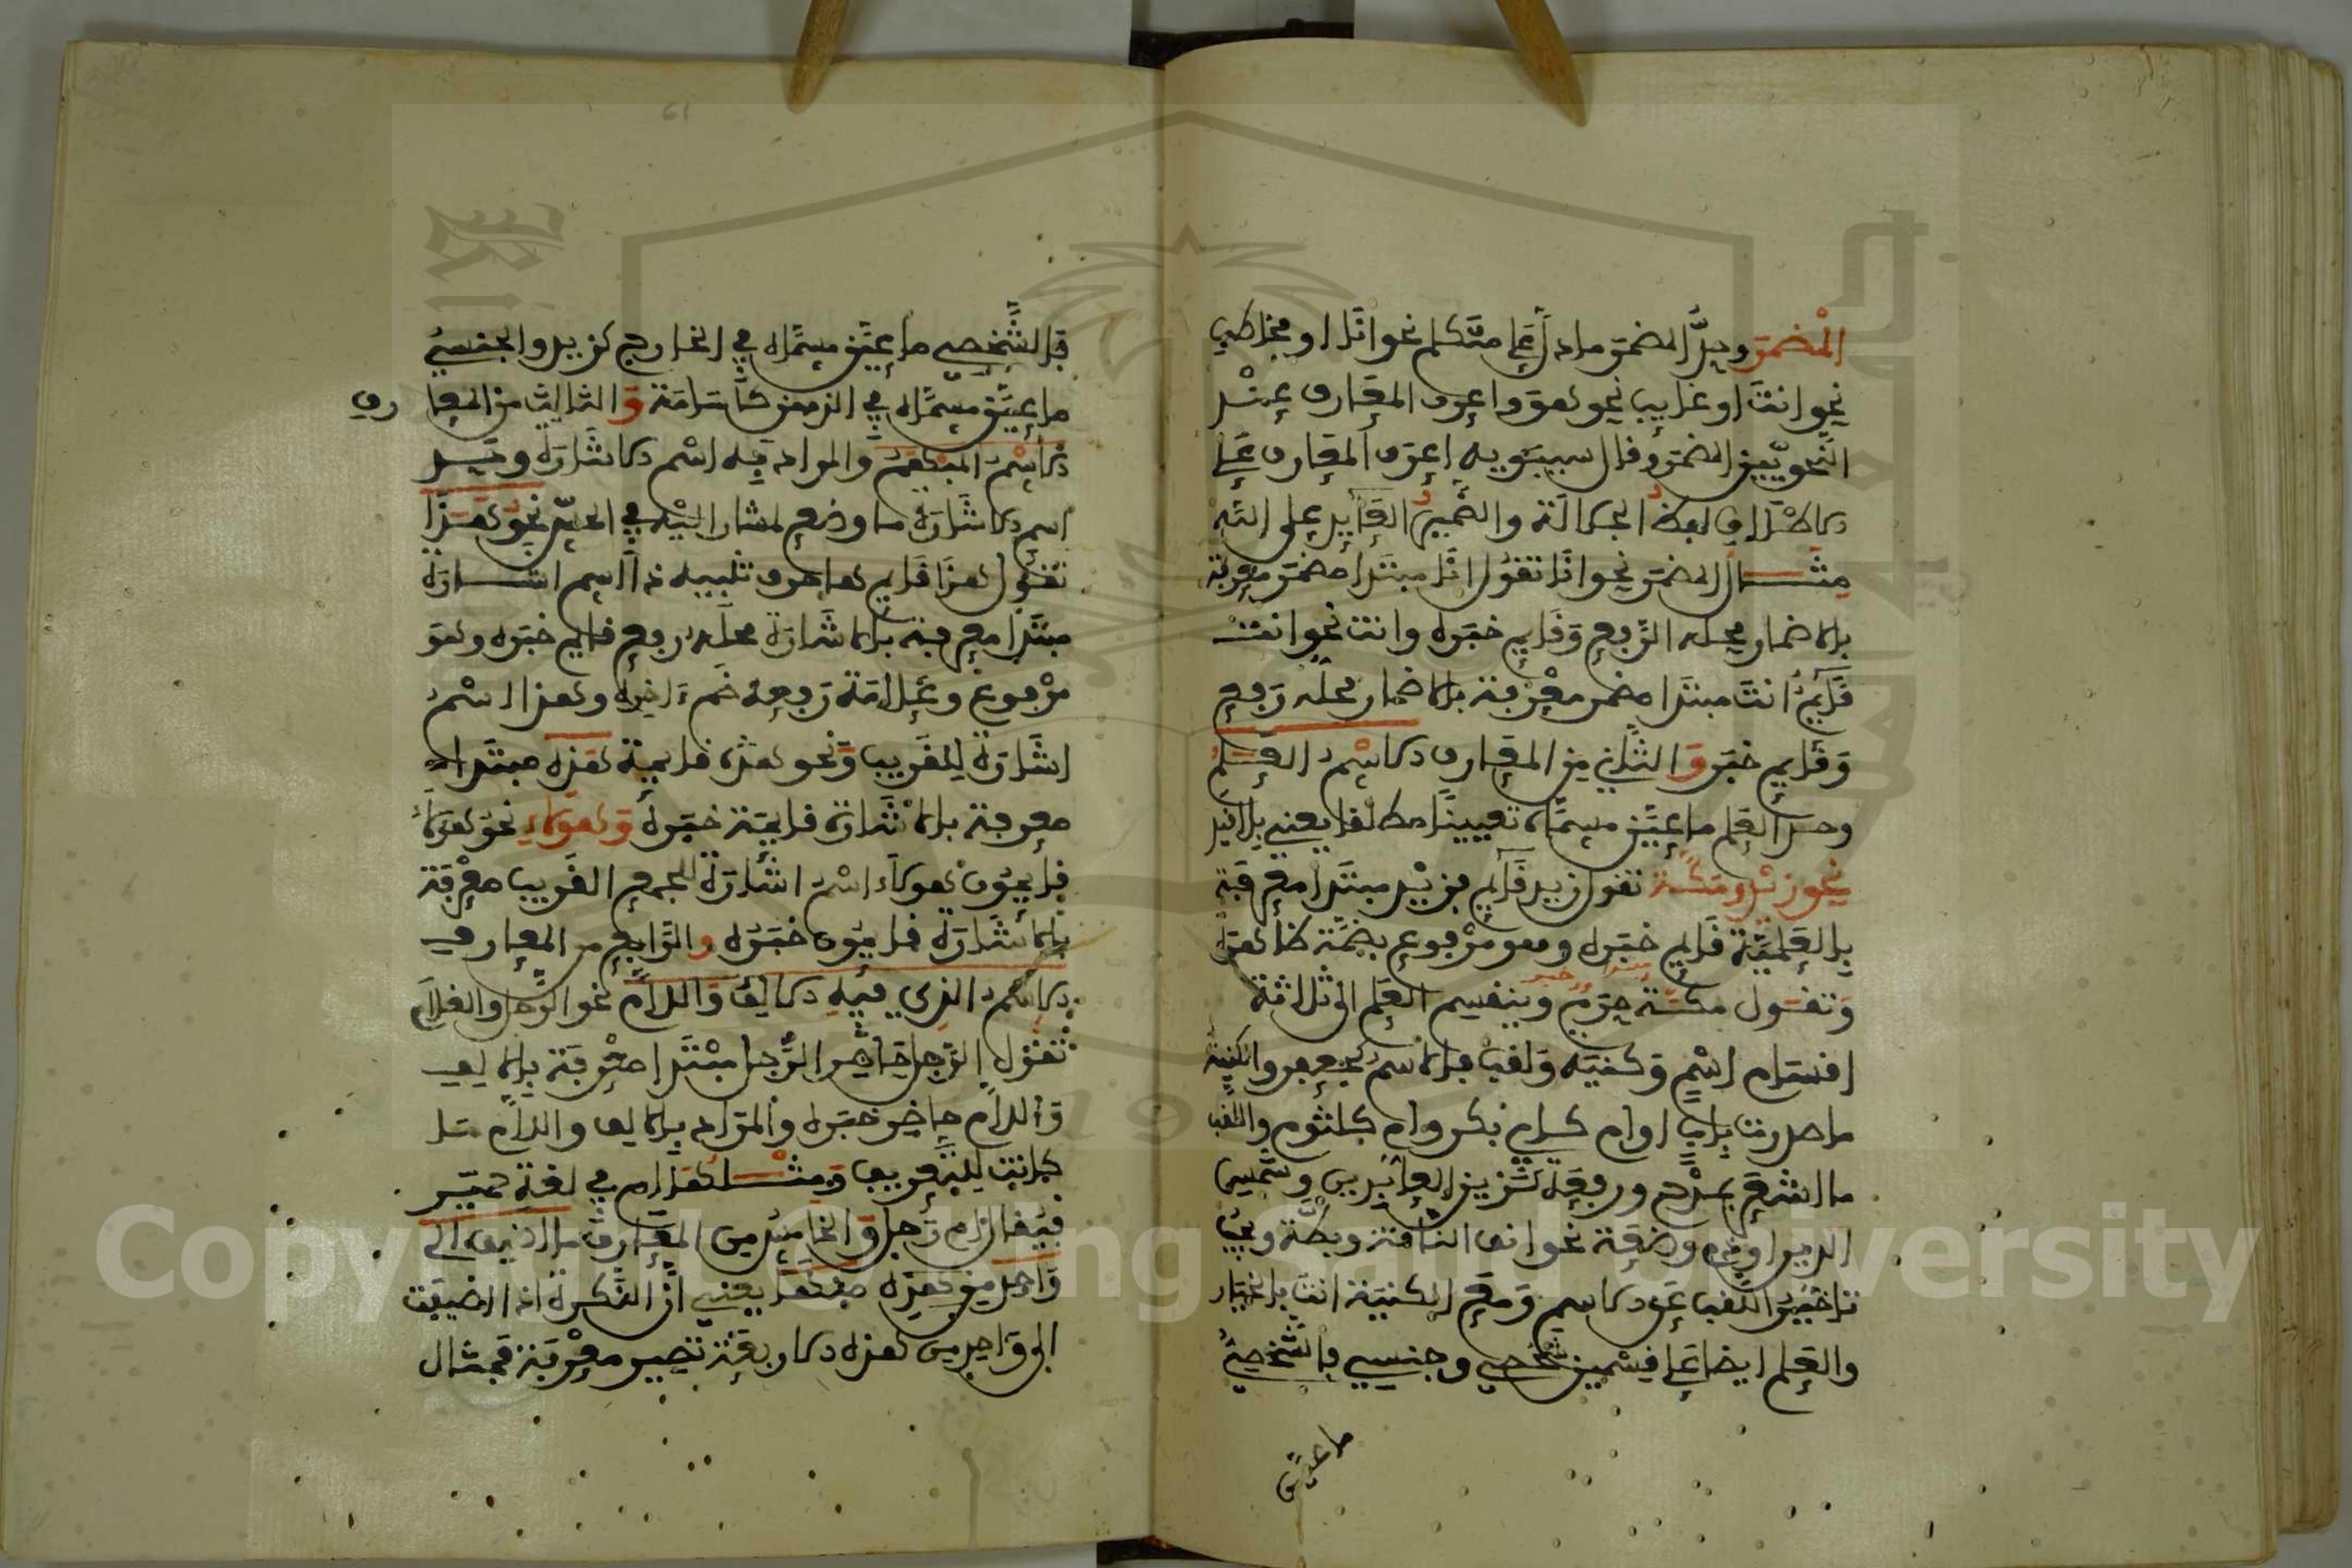 المضمر وحدّ المضمر ما دل على متكلم نحو انا او مخاطب
نحو انت او غايب نحو هو واعرف المعارف عند
النحويين المضمر وقال سيبويه اعرف المعارف على
الاطلاق لفظ الجلالة والضمير العايد على الله
مثال المضمر نحو انا تقول انا مبتدا مضمر معرفة
بالاضمار محله الرفع وقايم خبره وانت نحو انت
قايم انت مبتدا مضمر معرفة بالاضمار محله رفع
وقايم خبر والثاني من المعارف الاسم العلم
وحد العلم ما عيّن مسماه تعيينا مطلقا يعني بلا قيد
نحو زيد ومكة تقول زيد قايم فزيد مبتدا معرفة
بالعلمية قايم خبره وهو مرفوع بضمة ظاهرة
وتقول مكة حرم وينقسم العلم الى ثلاثة
اقسام اسم وكنيه ولقب فالاسم كجعفر والكنية
ما صدرت باب او ام كابي بكر وام كلثوم واللقب
ما اشعر بمدح ورفعة كزين العابدين وشمس
الدين او بذم وضعة نحو انف الناقة وبطة ويجب
تاخير اللقب عن الاسم ومع الكنية انت بالخيار
والعلم ايضا على قسمين شخصي وجنسي فالشخصي
ما عين
فالشخصي ما عيّن مسماه في الخارج كزيد والجنسي
ما عيّن مسماه في الذهن كاسامة والثالث من المعارف
الاسم المبهم والمراد به اسم الاشارة وحد
اسم الاشارة ما وضع لمشار اليه في الحس نحو هذا
تقول هذا قايم ها حرف تنبيه ذا اسم اشارة
مبتدا معرفة بالاشارة محله رفع قايم خبره وهو
مرفوع وعلامة رفعه ضم ءاخره وهذا اسم
اشارة للقريب ونحو هذه قايمة هذه مبتدا
معرفة بالاشارة قايمة خبره وهولاء نحو هولاء
قايمون هولاء اسم اشارة للجمع القريب معرفة
بالاشارة قايمون خبره والرابع من المعارف
الاسم الذي فيه الالف واللام نحو الرجل والغلام
تقول الرجل حاضر الرجل مبتدا معرفة بالالف
واللام حاضر خبره والمراد بالالف واللام ما
كانت للتعريف ومثلها ام في لغة حمير
فيقال ام رجل والخامس من المعارف ما اضيف الى
واحد من هذه يعني ان النكرة اذا اضيفت
الى واحد من هذه الاربعة تصير معرفة فمثال